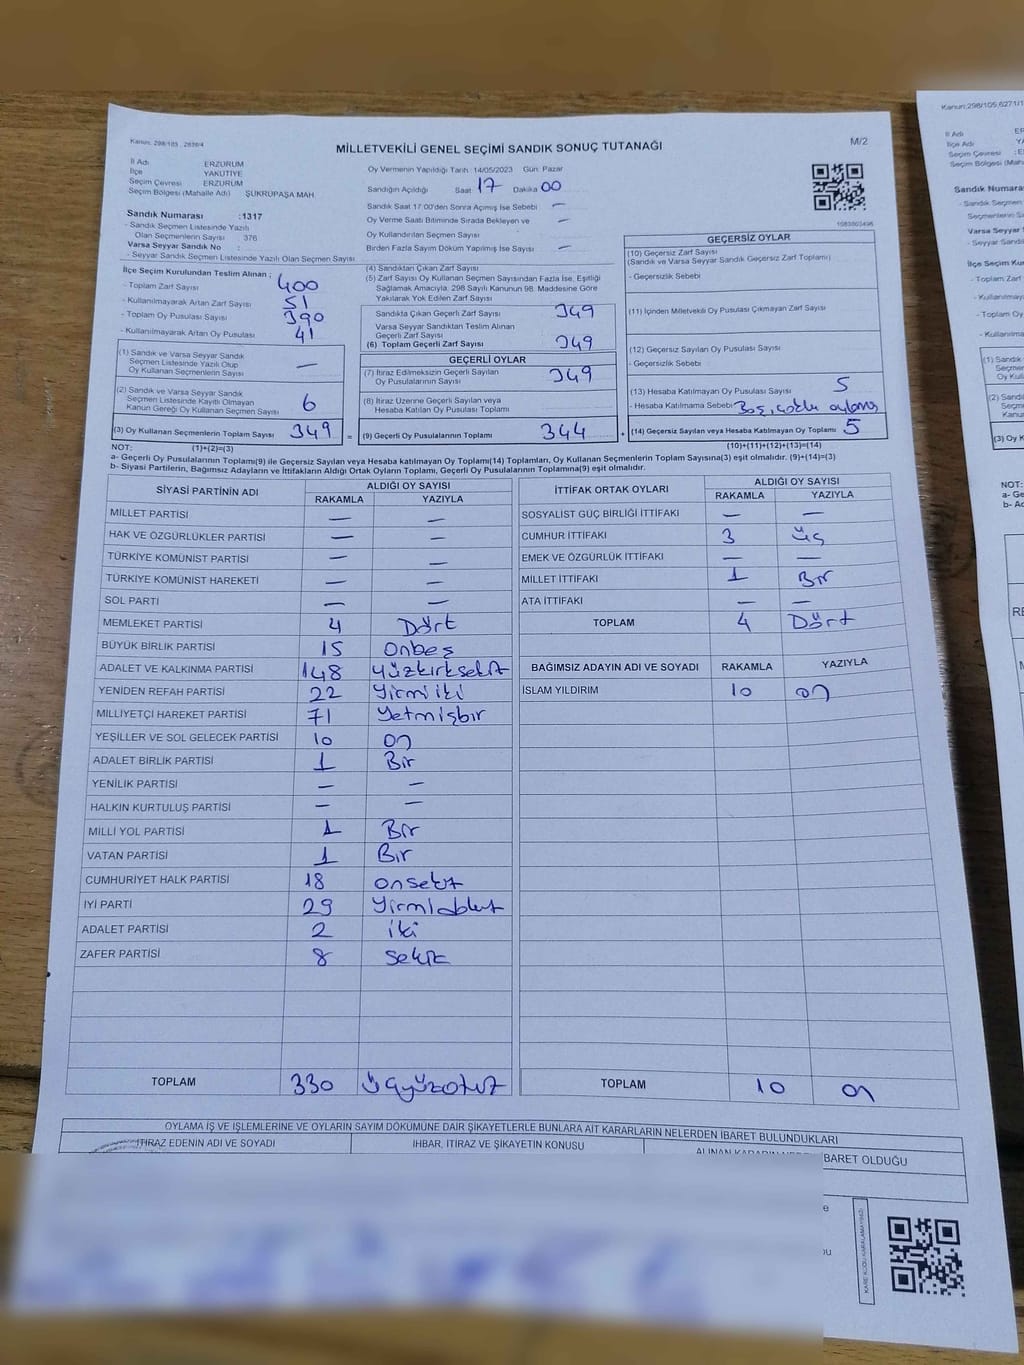 Kanun: 298/105 , 2839/4
MİLLETVEKİLİ GENEL SEÇİMİ SANDIK SONUÇ TUTANAĞI
M/2
İl Adı ERZURUM
İlçe YAKUTİYE
Seçim Çevresi ERZURUM
Seçim Bölgesi (Mahalle Adı) ŞÜKRÜPAŞA MAH
Sandık Numarası :1317
- Sandık Seçmen Listesinde Yazılı
Olan Seçmenlerin Sayısı : 376
Varsa Seyyar Sandık No :
- Seyyar Sandık Seçmen Listesinde Yazılı Olan Seçmen Sayısı
Oy Vermenin Yapıldığı Tarih :14/05/2023 Gün: Pazar
Sandığın Açıldığı Saat 17 Dakika 00
Sandık Saat 17:00'den Sonra Açımış İse Sebebi —
Oy Verme Saati Bitiminde Sırada Bekleyen ve —
Oy Kullandırılan Seçmen Sayısı
Birden Fazla Sayım Döküm Yapılmış İse Sayısı —
1083803498
İlçe Seçim Kurulundan Teslim Alınan ;
- Toplam Zarf Sayısı : 400
- Kullanılmayarak Artan Zarf Sayısı : 51
- Toplam Oy Pusulası Sayısı : 390
- Kullanılmayarak Artan Oy Pusulası : 41
(1) Sandık ve Varsa Seyyar Sandık
Seçmen Listesinde Yazılı Olup
Oy Kullanan Seçmenlerin Sayısı —
(2) Sandık ve Varsa Seyyar Sandık
Seçmen Listesinde Kayıtlı Olmayan
Kanun Gereği Oy Kullanan Seçmen Sayısı 6
(3) Oy Kullanan Seçmenlerin Toplam Sayısı 349 =
(4) Sandıktan Çıkan Zarf Sayısı
(5) Zarf Sayısı Oy Kullanan Seçmen Sayısından Fazla İse, Eşitliği
Sağlamak Amacıyla, 298 Sayılı Kanunun 98. Maddesine Göre
Yakılarak Yok Edilen Zarf Sayısı
Sandıkta Çıkan Geçerli Zarf Sayısı 349
Varsa Seyyar Sandıktan Teslim Alınan
Geçerli Zarf Sayısı
(6) Toplam Geçerli Zarf Sayısı 349
GEÇERLİ OYLAR
(7) İtiraz Edilmeksizin Geçerli Sayılan
Oy Pusulalarının Sayısı 349
(8) İtiraz Üzerine Geçerli Sayılan veya
Hesaba Katılan Oy Pusulası Toplamı
(9) Geçerli Oy Pusulalarının Toplamı 344 +
GEÇERSİZ OYLAR
(10) Geçersiz Zarf Sayısı
(Sandık ve Varsa Seyyar Sandık Geçersiz Zarf Toplamı)
- Geçersizlik Sebebi
(11) İçinden Milletvekili Oy Pusulası Çıkmayan Zarf Sayısı
(12) Geçersiz Sayılan Oy Pusulası Sayısı
- Geçersizlik Sebebi
(13) Hesaba Katılmayan Oy Pusulası Sayısı 5
- Hesaba Katılmama Sebebi Boş,
(14) Geçersiz Sayılan veya Hesaba Katılmayan Oy Toplamı 5
NOT: (1)+(2)=(3) (10)+(11)+(12)+(13)=(14)
a- Geçerli Oy Pusulalarının Toplamı(9) ile Geçersiz Sayılan veya Hesaba katılmayan Oy Toplamı(14) Toplamları, Oy Kullanan Seçmenlerin Toplam Sayısına(3) eşit olmalıdır. (9)+(14)=(3)
b- Siyasi Partilerin, Bağımsız Adayların ve İttifakların Aldığı Ortak Oyların Toplamı, Geçerli Oy Pusulalarının Toplamına(9) eşit olmalıdır.
SİYASİ PARTİNİN ADI ALDIĞI OY SAYISI
RAKAMLA YAZIYLA
MİLLET PARTİSİ — —
HAK VE ÖZGÜRLÜKLER PARTİSİ — —
TÜRKİYE KOMÜNİST PARTİSİ — —
TÜRKİYE KOMÜNİST HAREKETİ — —
SOL PARTİ — —
MEMLEKET PARTİSİ 4 Dört
BÜYÜK BİRLİK PARTİSİ 15 onbeş
ADALET VE KALKINMA PARTİSİ 148 yüzkırksekiz
YENİDEN REFAH PARTİSİ 22 Yirmiiki
MİLLİYETÇİ HAREKET PARTİSİ 71 Yetmişbir
YEŞİLLER VE SOL GELECEK PARTİSİ 10 on
ADALET BİRLİK PARTİSİ 1 Bir
YENİLİK PARTİSİ — —
HALKIN KURTULUŞ PARTİSİ — —
MİLLİ YOL PARTİSİ 1 Bir
VATAN PARTİSİ 1 Bir
CUMHURİYET HALK PARTİSİ 18 onsekiz
İYİ PARTİ 29 Yirmidokuz
ADALET PARTİSİ 2 iki
ZAFER PARTİSİ 8 Sekiz
TOPLAM 330 üçyüzotuz
İTTİFAK ORTAK OYLARI ALDIĞI OY SAYISI
RAKAMLA YAZIYLA
SOSYALİST GÜÇ BİRLİĞİ İTTİFAKI — —
CUMHUR İTTİFAKI 3 Üç
EMEK VE ÖZGÜRLÜK İTTİFAKI — —
MİLLET İTTİFAKI 1 Bir
ATA İTTİFAKI — —
TOPLAM 4 Dört
BAĞIMSIZ ADAYIN ADI VE SOYADI RAKAMLA YAZIYLA
İSLAM YILDIRIM 10 on
TOPLAM 10 on
OYLAMA İŞ VE İŞLEMLERİNE VE OYLARIN SAYIM DÖKÜMÜNE DAİR ŞİKAYETLERLE BUNLARA AİT KARARLARIN NELERDEN İBARET BULUNDUKLARI
İTİRAZ EDENİN ADI VE SOYADI İHBAR, İTİRAZ VE ŞİKAYETİN KONUSU ALINAN BARET OLDUĞU
Kanun:298/105,6271/1
İl Adı
İlçe Adı
Seçim Çevresi
Seçim Bölgesi (Mahalle
Sandık Numarası
- Sandık Seçmen
Seçmenlerin
Varsa Seyyar
- Seyyar Sandı
İlçe Seçim Ku
- Toplam Zarf
- Kullanılmayan
- Toplam Oy
- Kullanılmay
(1) Sandık
Seçmen
Oy Kul
(3) Oy K
NOT:
a- Ge